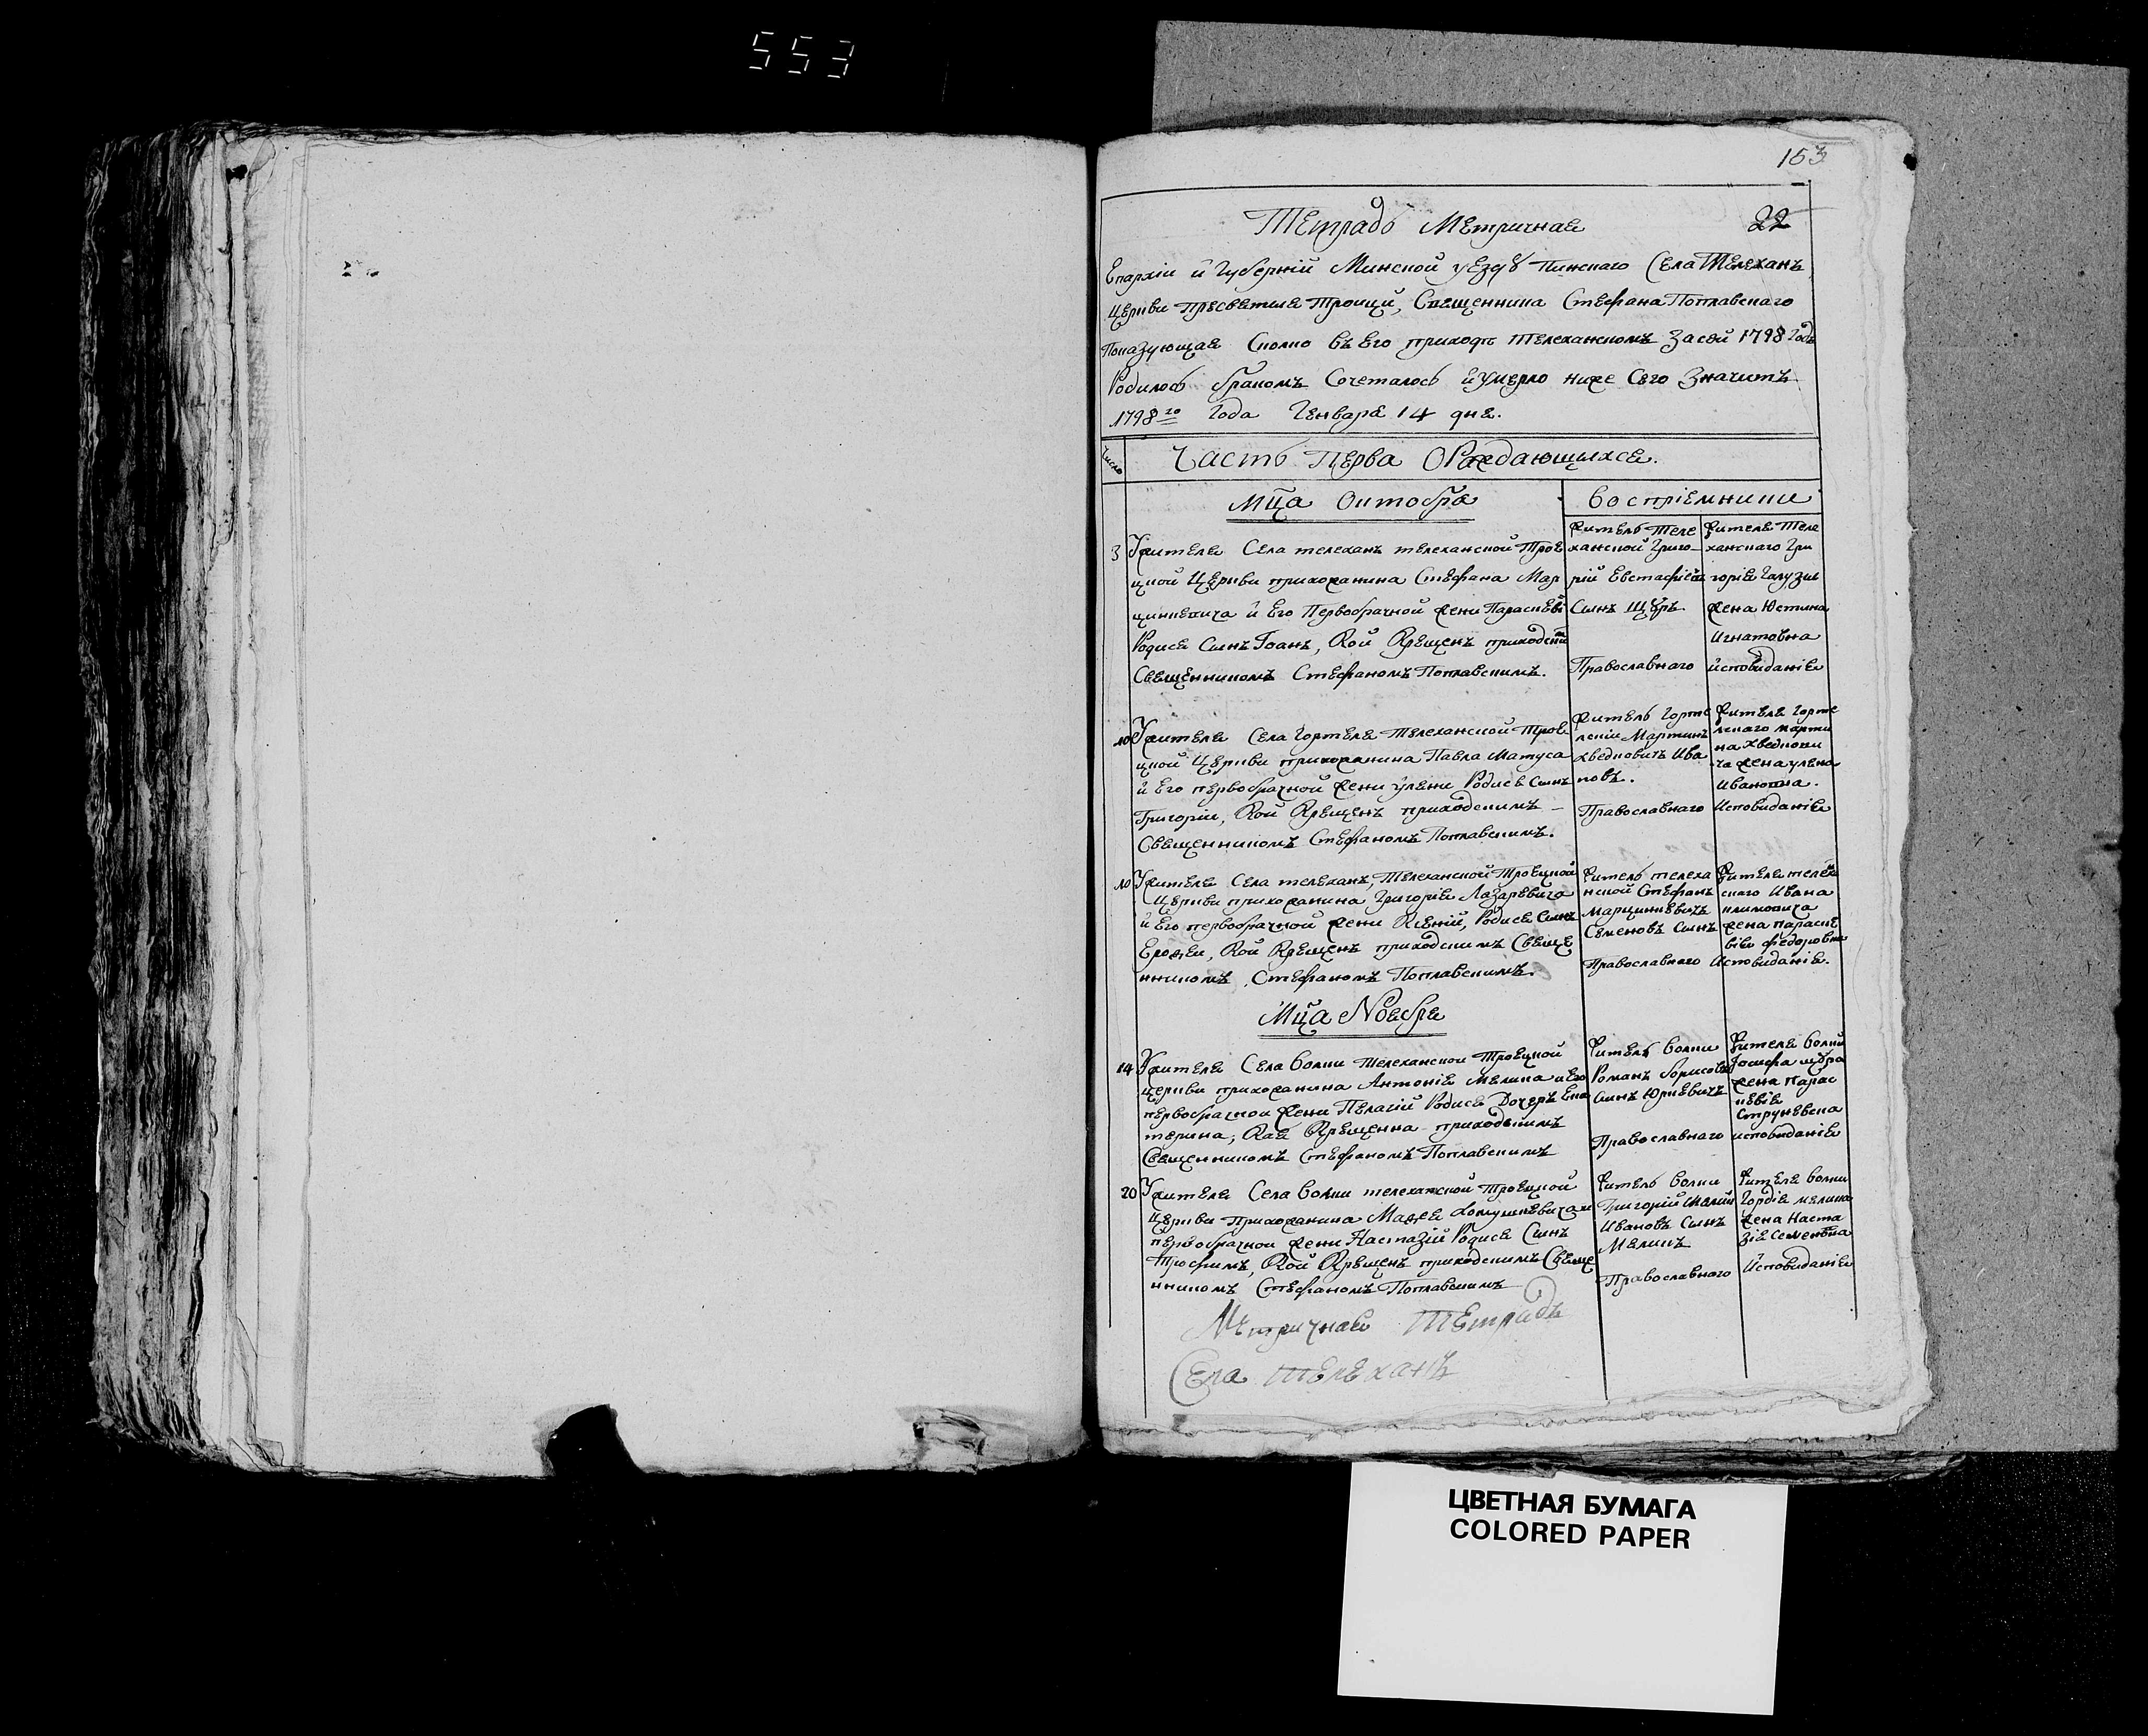 553
153
Тетрадь Метричная 22
Епархіи и Губерніи Минской уезду Пинскаго Села Телеханъ
Церкви Пресветые Троици, Священника Стефана Поплавскаго
Показующая Сколко въ Его приходе Телеханскомъ За сей 1798 Годъ
Родилось бракомъ Сочеталось и умерло ниже Сего Значитъ
1798го Года Генваря 14 дня.
Число
Часть Перва О Раждающыхся.
Мца Октобра
Воспріемники
3 У жителя Села телеханъ телеханской Трое
цкой Церкви прихожанина Стефана Мар
цинкевича и Его Первобрачной жени Параскеви
Родися Сынъ Іоанъ, Кой Крещенъ приходским
Священникомъ Стефаномъ Поплавскимъ.
Житель Теле
ханской Григо
рій Евстафіевъ
Сынъ Щуръ.
Православнаго
Жителя Теле
ханскаго Гри
горія Галузы
жена Юстина
Игнатовна
исповиданія
10 У жителя Села Гортеля Телеханской Трое
цкой Церкви прихожанина Павла Матуса
и Его первобрачной жени Уляни Родися Сынъ
Григорій, Кой Крещенъ приходскимъ
Священникомъ Стефаномъ Поплавскимъ.
Житель Горте
лскіи Мартинъ
Хведковичъ Ива
новъ.
Православнаго
Жителя Горте
лскаго марти
на Хведкови
ча жена уляна
Ивановна.
Исповиданія
10 У жителя Села телеханъ, Телеханской Троецкой
Церкви прихожанина Григорія Лазаревича
и Его первобрачной жени Ксеній, Родися Сынъ
Ерофеи, Кой Крещенъ приходскимъ Свяще
нникомъ, Стефаномъ Поплавскимъ.
Житель телеха
нской Стефанъ
Марцинкевичъ
Семеновъ Сынъ
Православнаго
Жителя телехан
скаго Ивана
климовича
жена параске
вія федоровна
Исповиданія.
Мца Ноября
14 У жителя Села Волки Телеханской Троецкой
церкви прихожанина Антонія Мелика и Его
первобрачной жени Пелагій Родися Дочеръ Ека
терина, Кая Крещенна приходскимъ
Священникомъ Стефаномъ Поплавскимъ
Житель Волки
Романъ борисовъ
Сынъ Юркевичъ
Православнаго
Жителя Волки
Іосифа щура
жена Парас
кевія
исповиданія
20 У жителя Села Волки телеханской Троецкой
Церкви Прихожанина Мафея и
первобрачной жени Настазій Родися Сынъ
Трофимъ, Кой Крещенъ приходскимъ Свяще
нникомъ Стефаномъ Поплавскимъ
Житель Волки
Григорій Мелик
Ивановъ Сынъ
Меликъ
Православнаго
Жителя Волки
Гордія мелика
жена Наста
зія Семеновна
Исповиданія
Метричная Тетрадъ
Села Телеханъ
ЦВЕТНАЯ БУМАГА
COLORED PAPER